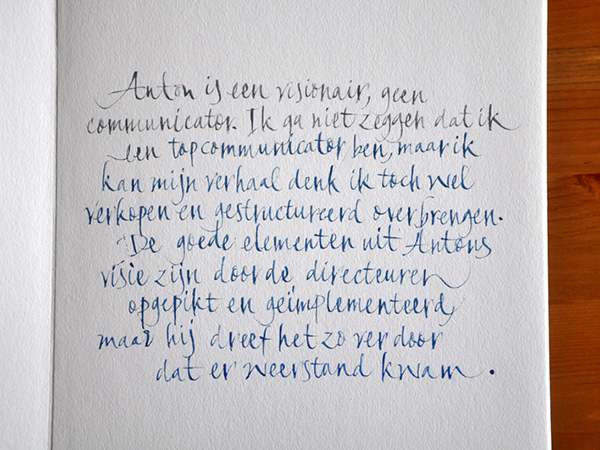 Anton is een visionair, geen
communicator. Ik ga niet zeggen dat ik
een topcommunicator ben, maar ik
kan mijn verhaal denk ik toch wel
verkopen en gestructureerd overbrengen.
De goede elementen uit Antons
visie zijn door de directeuren
opgepikt en geïmplementeerd,
maar hij dreef het zo ver door
dat er weerstand kwam.